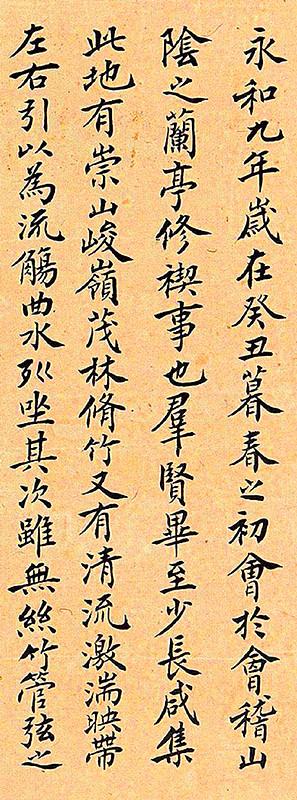 永和九年歲在癸丑暮春之初會於會稽山
陰之蘭亭修禊事也羣賢畢至少長咸集
此地有崇山峻嶺茂林脩竹又有清流激湍映帶
左右引以為流觴曲水列坐其次雖無絲竹管弦之